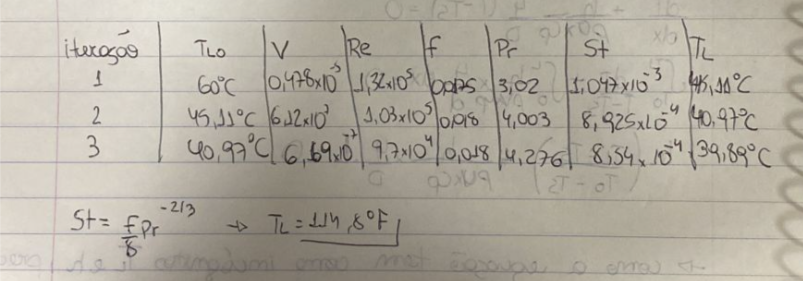 iteração TLo V Re f Pr St TL
1 60°C 0,478x10⁻³ 1,32x10⁵ 0,0175 3,02 1,047x10⁻³ 45,11°C
2 45,11°C 6,12x10⁷ 1,03x10⁵ 0,018 4,003 8,925x10⁻⁴ 40,97°C
3 40,97°C 6,69x10⁻⁷ 9,7x10⁴ 0,018 4,276 8,54x10⁻⁴ 39,89°C
St = f/8 Pr⁻²/³ → TL = 114,8°F